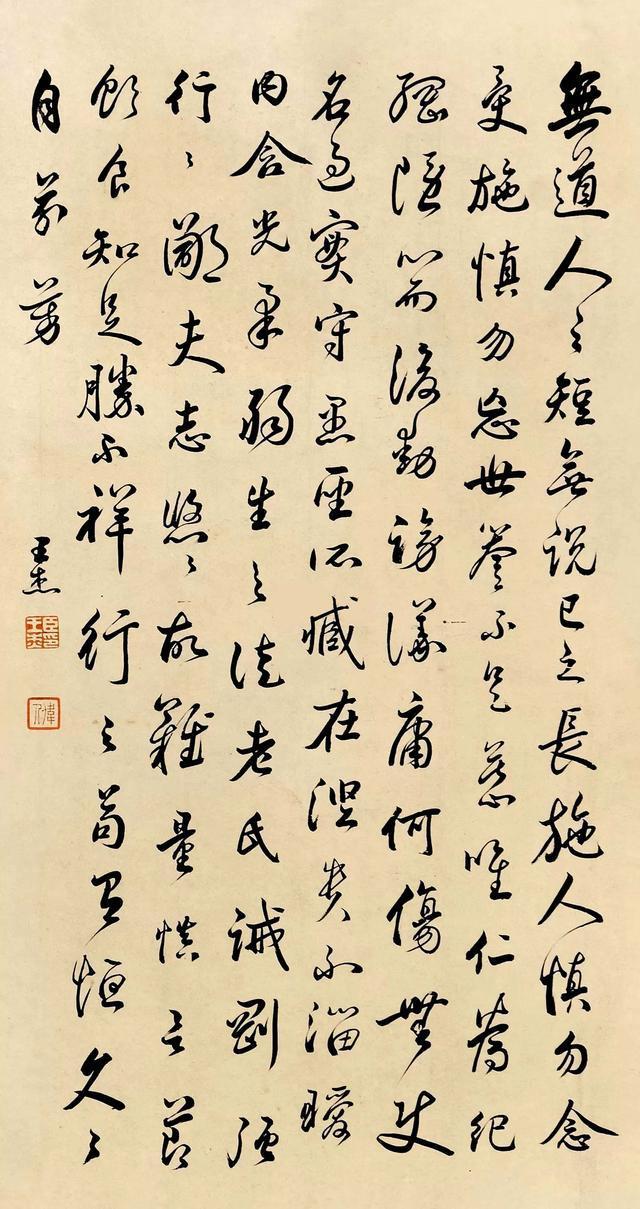 無道人之短無說己之長施人慎勿念
受施慎勿忘世譽不足慕唯仁為紀
綱隱心而後動謗議庸何傷無使
名過實守愚聖所臧在涅貴不淄曖
內含光柔弱生之徒老氏誡剛強
行々鄙夫志悠々故難量慎言節
飲食知足勝不祥行之苟有恒久々
自芬芳
王杰
偉人